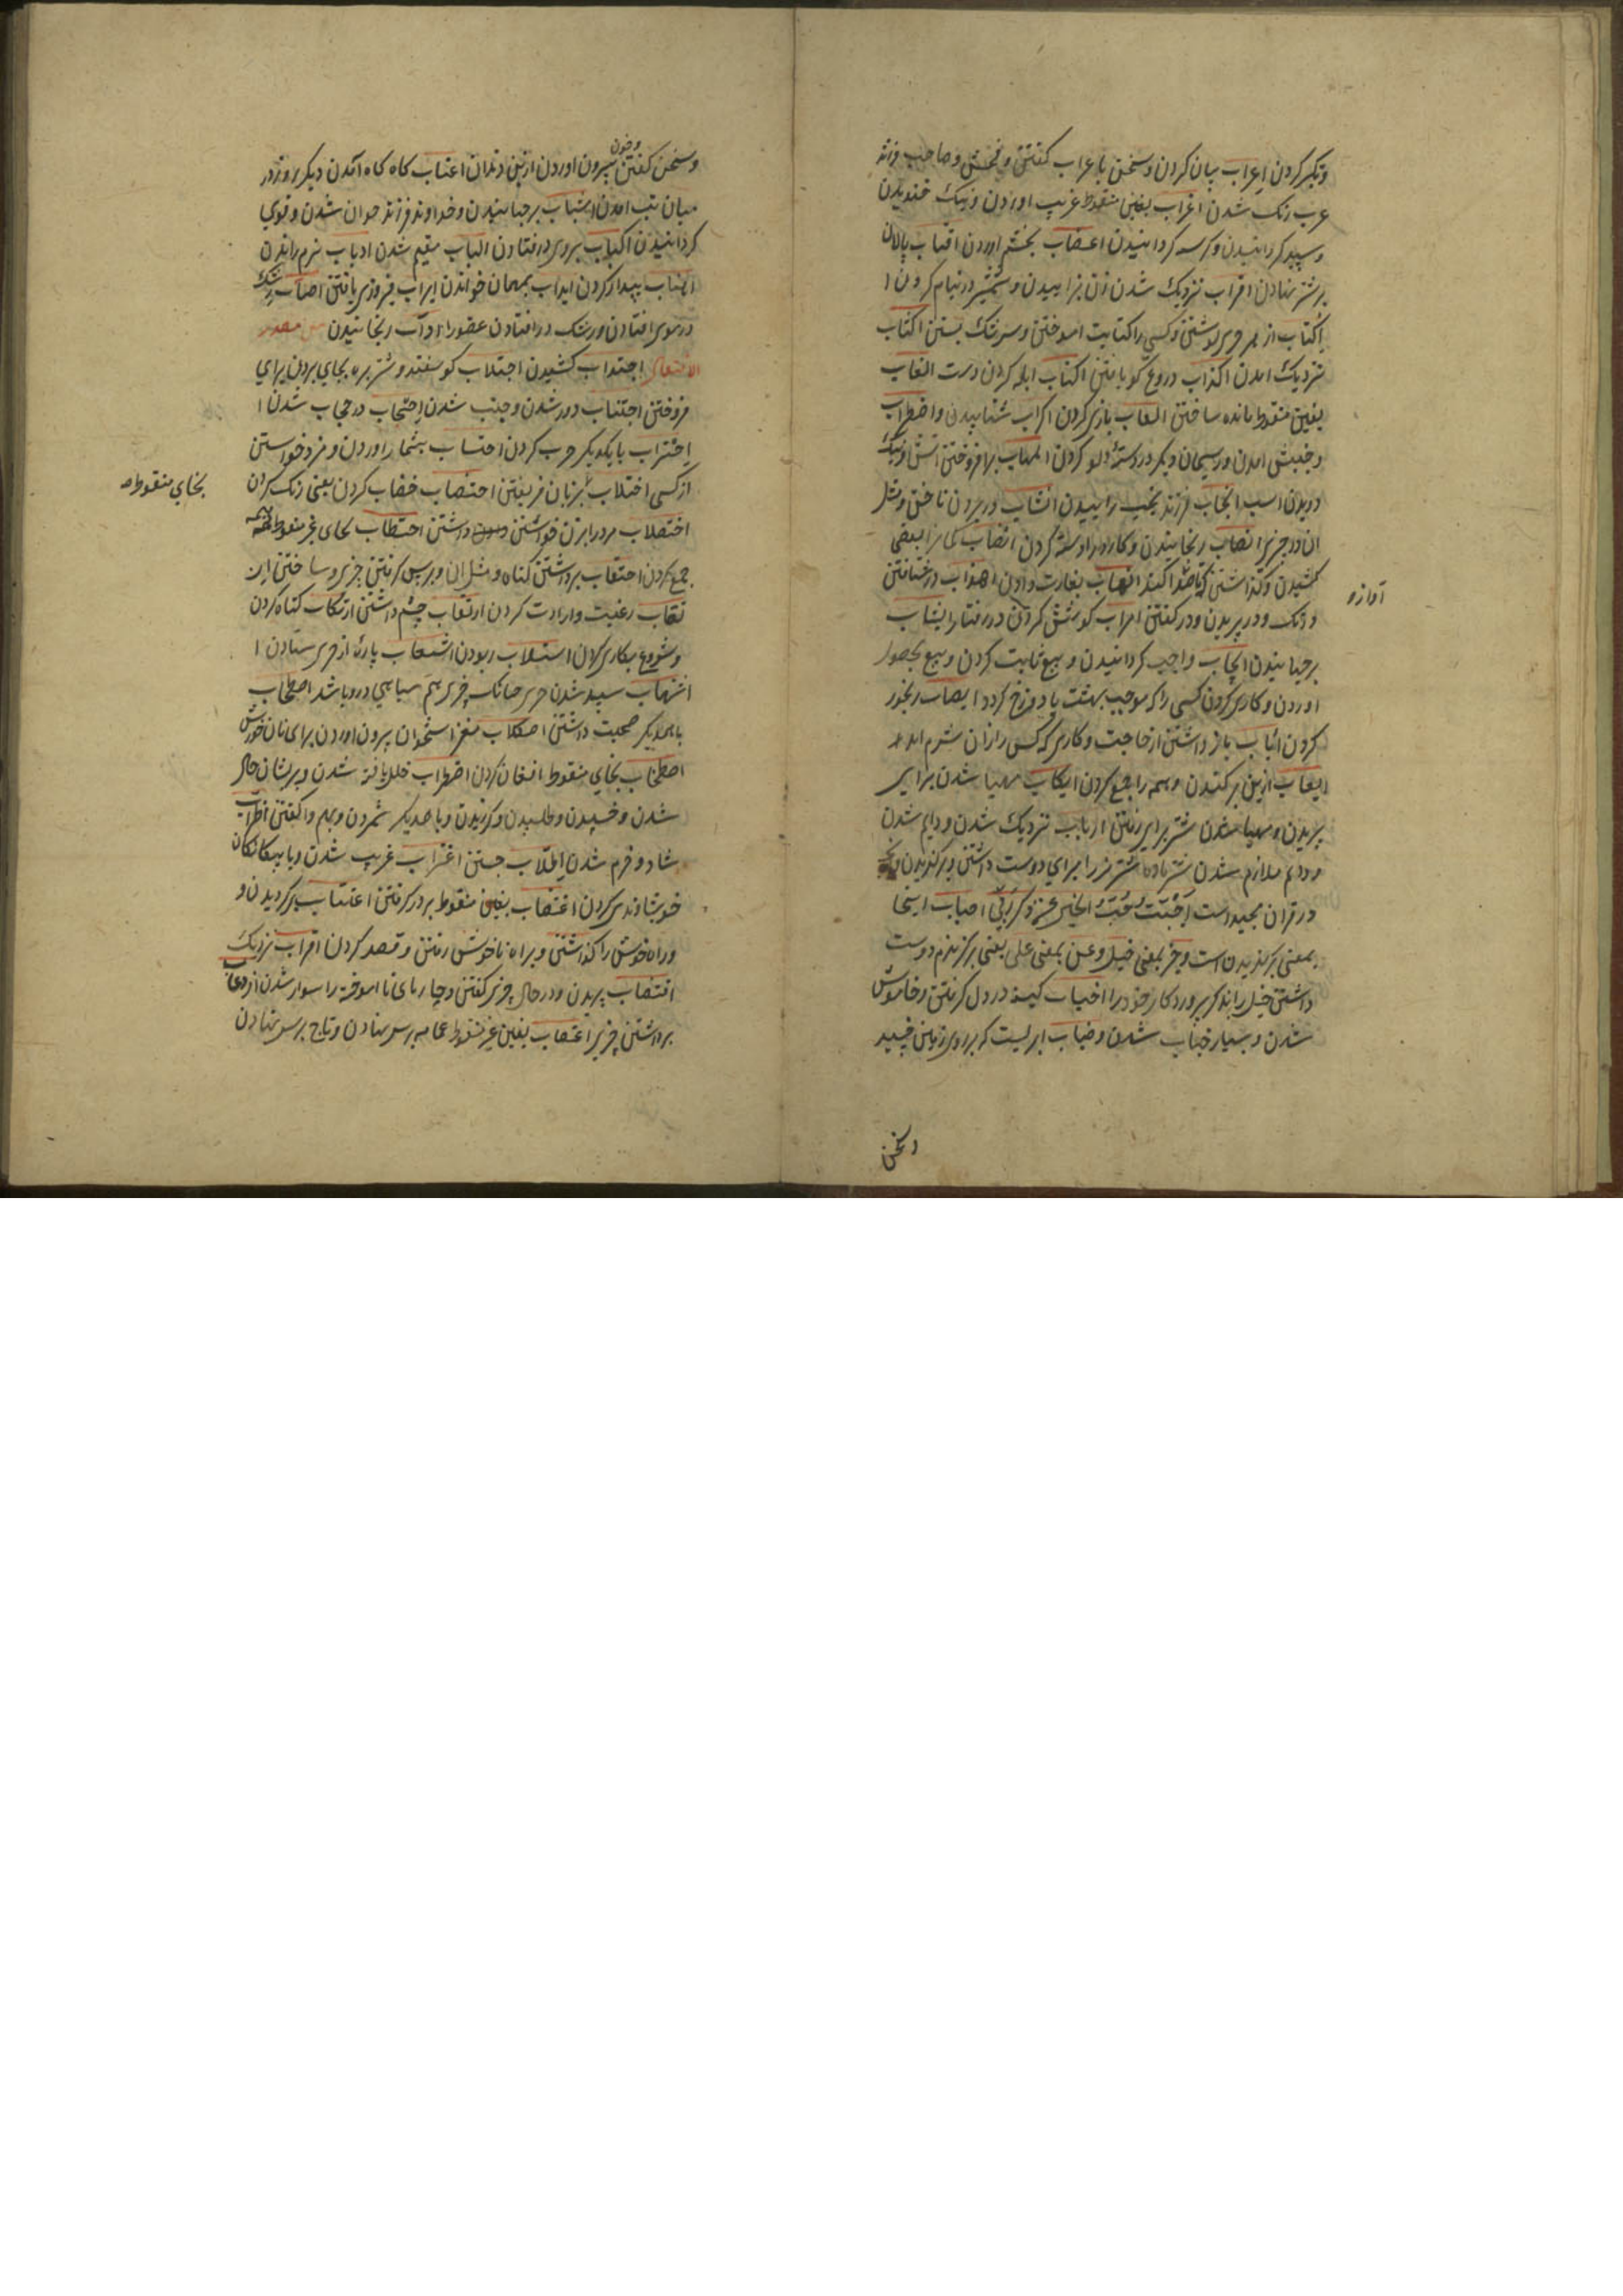 وتکبر کردن اعراب بیان کردن و سخن با عراب کفتن و فحش و صاحب فرزند
عرب رنک شدن اغراب بغین منقوط غریب اوردن و نیک خندیدن
و سپید کردانیدن و کرسنه کردانیدن اعضاب بخشم اوردن اقتاب پالان
بر شتر نهادن اقراب نزدیک شدن زن بزاییدن و شمشیر در نیام کردن ا
اکتاب از بر چیزی نوشتن و کسی را کتابت اموختن و سر مشک بستن اکثاب
نزدیک امدن اکذاب دروغ کو یافتن اکناب ابله کردن دست الغاب
بغین منقوط مانده ساختن العاب بازی کردن اکراب شتابیدن و اضطراب
و جنبش امدن و ریسمان دیکر در دسته دلو کردن الهاب برافروختن اتش و نیک
دویدن اسب انجاب فرزند نجیب زاییدن انشاب در بردن ناخن و مثل
ان در چیزی انصاب رنجانیدن و کارد را دسته کردن انضاب کمان را بعضی
کشیدن و کذاشتن تا صدا کند انهاب بغارت دادن اهذاب در شتافتن
و تک و در پریدن و در کفتن اهراب کوشش کردن در رفتار ایثاب
برجهانیدن ایجاب واجب کردانیدن و بیع ثابت کردن و بیع بحصول
اوردن و کاری کردن کسی را که موجب بهشت یا دوزخ کردد ایصاب رنجور
کردن ایاب باز داشتن از حاجت و کاری که کس را از ان شرم اید
ایعاب از بن برکندن و همه را جمع کردن ایکاب مهیا شدن برای
پریدن و مهیا شدن شتر برای رفتن ارباب نزدیک شدن و دایم شدن
و دایم ملازم شدن شتر ماده شتر نر را برای دوست داشتن و برکزیدن
در قران مجید است احببت حب الخیر عن ذکر ربی احباب اینجا
بمعنی برکزیدن است و خیر بمعنی خیل و عن بمعنی علی یعنی برکزیدم دوست
داشتن خیل را بر ذکر پروردکار خود را اضباب کینه در دل کرفتن و خاموش
شدن و بسیار ضباب شدن و ضباب ابریست که بر روی زمین چسپد
آواز و
و سخن
و سخن کفتن و خون بیرون اوردن از بن دندان اغباب کاه کاه آمدن دیکر روز در
میان تب امدن اشباب برجهانیدن و خداوند فرزند جوان شدن و قوی
کردانیدن اکباب بروی در فتادن الباب مقیم شدن ادباب نرم راندن
پیدا کردن ایداب بمهمان خواندن ایراب فیروزی یافتن
در موی افتادن و رشک در افتادن عضو را ادآب رنجانیدن من مصدر
الافتعال اجتذاب کشیدن اجتلاب کوسفند و شتر برده بجای بردن برای
فروختن اجتناب دور شدن و جنب شدن احتجاب در حجاب شدن ا
احتراب با یکدیکر حرب کردن احتساب بشمار اوردن و مزد خواستن
از کسی اختلاب بزبان فریفتن اختضاب خضاب کردن یعنی رنک کردن
بخای منقوطه
داشتن احتطاب بحای غیر منقوط هیمه
جمع کردن احتقاب برداشتن کناه و مثل ان و برپس کرفتن چیزی و ساختن
رغبت و ارادت کردن ارتقاب چشم داشتن ارتکاب کناه کردن
و شروع بکاری کردن استلاب ربودن اشتعاب پاره از چیزی ستادن ا
اشتهاب سپید شدن چیزی چنانک چیزی هم سیاهی در و باشد اصطحاب
با همدیکر صحبت داشتن اصطلاب مغز استخوان بیرون اوردن برای نان خورش
اصطخاب بخای منقوط افغان کردن اضطراب خلل یافته شدن و پریشان حال
شدن و خسپیدن و طلبیدن و کزیدن و با همدیکر شمردن و بهم واکفتن اطراب
شاد و خرم شدن اطلاب جستن اغتراب غریب شدن و با بیکانکان
خویشاوندی کردن اغتصاب بغین منقوط بزور کرفتن اعتتاب برکردیدن و
و راه خوش را کذاشتن و براه ناخوش رفتن و قصد کردن اقتراب نزدیک
اقتضاب بریدن و در حال چیزی کفتن و چارپای نا اموخته را سوار شدن
برداشتن چیزی اعتصاب بعین غیر منقوط عمامه بر سر نهادن و تاج بر سر نهادن